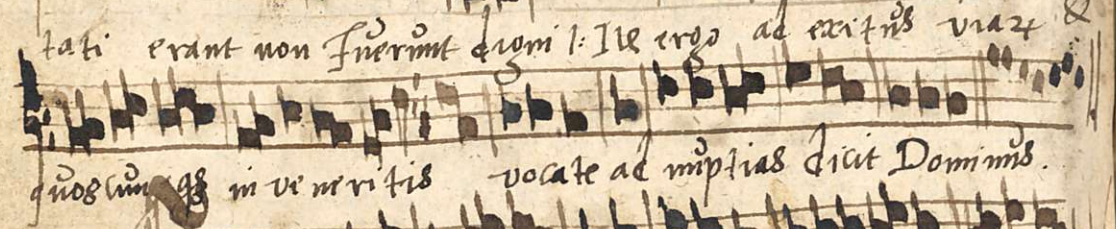 tati erant non fuerunt digni /: Ite ergo ad exitus viaꝝ &
quoscunqꝫ inveneritis vocate ad nuptias dicit Dominus.